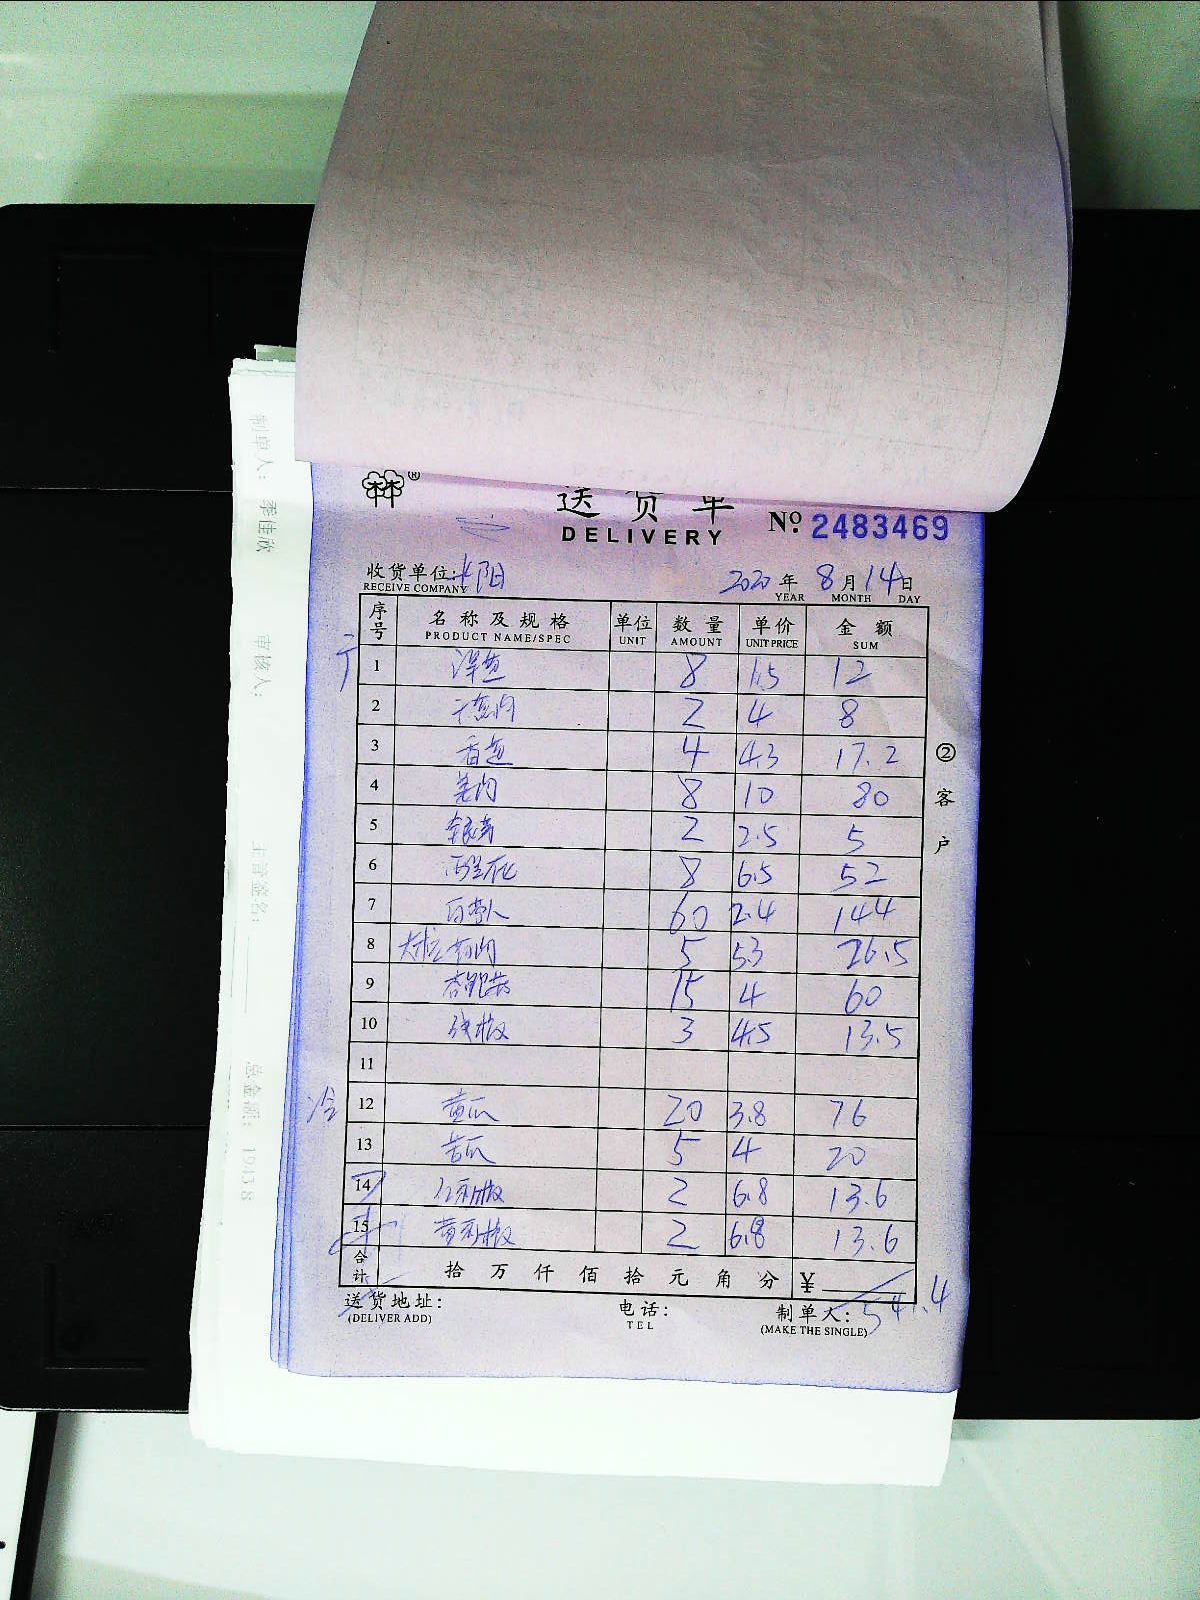 林®
送货单
DELIVERY
No. 2483469
收货单位:
RECEIVE COMPANY
2020年8月14日
YEAR MONTH DAY
序号 名称及规格 单位 数量 单价 金额
PRODUCT NAME/SPEC UNIT AMOUNT UNIT PRICE SUM
1 洋葱 8 1.5 12
2 2 4 8
3 香葱 4 4.3 17.2
4 姜肉 8 10 80
5 银芽 2 2.5 5
6 西兰花 8 6.5 52
7 60 2.4 144
8 5 5.3 26.5
9 杏鲍菇 15 4 60
10 线椒 3 4.5 13.5
11
冷 12 黄瓜 20 3.8 76
13 苦瓜 5 4 20
14 红彩椒 2 6.8 13.6
15 黄彩椒 2 6.8 13.6
合计 拾万仟佰拾元角分 ¥ 541.4
送货地址: 电话: 制单人:
(DELIVER ADD) TEL (MAKE THE SINGLE)
②客户
制单人: 季佳欣 审核人: 主管签名: 总金额: 1943.8